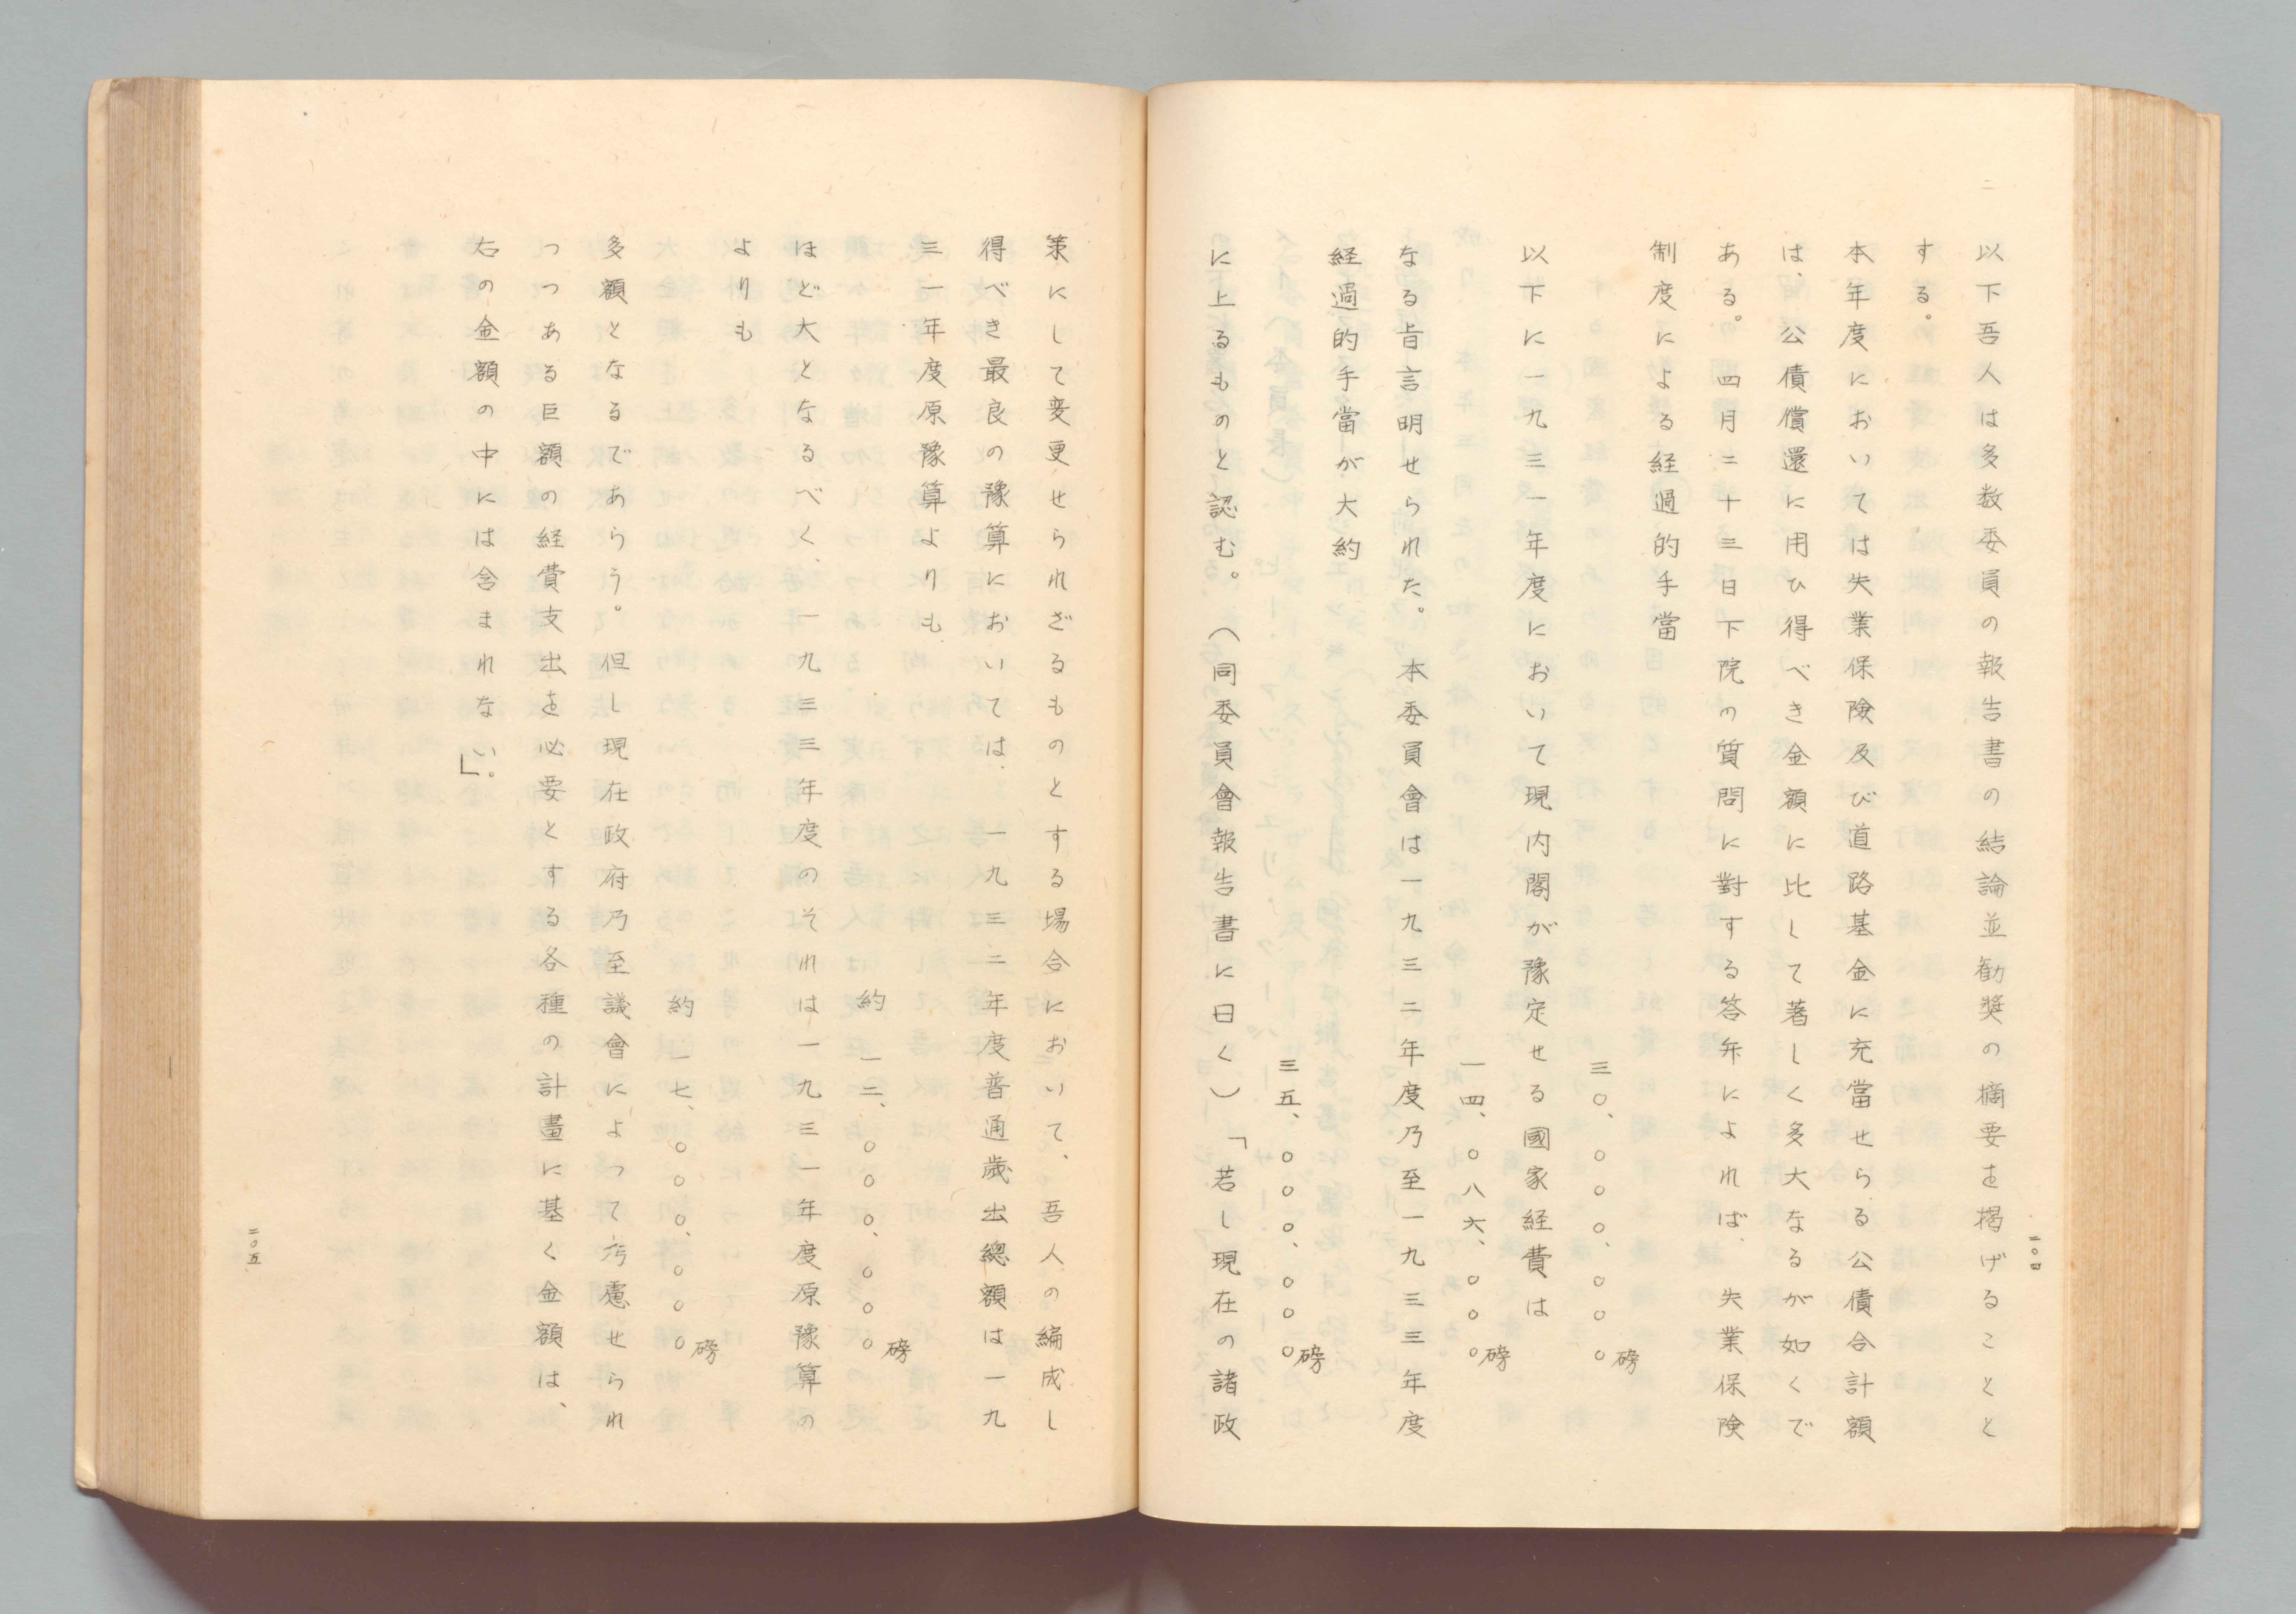 二〇四
以下吾人は多数委員の報告書の結論並勧奨の摘要を掲げることと
する。
本年度においては失業保険及び道路基金に充當せらる公債合計額
は、公債償還に用ひ得べき金額に比して著しく多大なるが如くで
ある。四月二十三日下院の質問に對する答弁によれば、失業保険
制度による経過的手當
三〇、〇〇〇、〇〇〇磅
以下に一九三一年度において現内閣が豫定せる國家経費は
一四、〇八六、〇〇〇磅
なる旨言明せられた。本委員會は一九三二年度乃至一九三三年度
経過的手當が大約
三五、〇〇〇、〇〇〇磅
に上るものと認む。(同委員會報告書に曰く)「若し現在の諸政
策にして変更せられざるものとする場合において、吾人の編成し
得べき最良の豫算においては、一九三二年度普通歳出總額は一九
三一年度原豫算よりも
約一二、〇〇〇、〇〇〇磅
ほど大となるべく、一九三三年度のそれは一九三一年度原豫算の
よりも
約一七、〇〇〇、〇〇〇磅
多額となるであらう。但し現在政府乃至議會によつて考慮せられ
つつある巨額の経費支出を必要とする各種の計畫に基く金額は、
右の金額の中には含まれない。」
二〇五